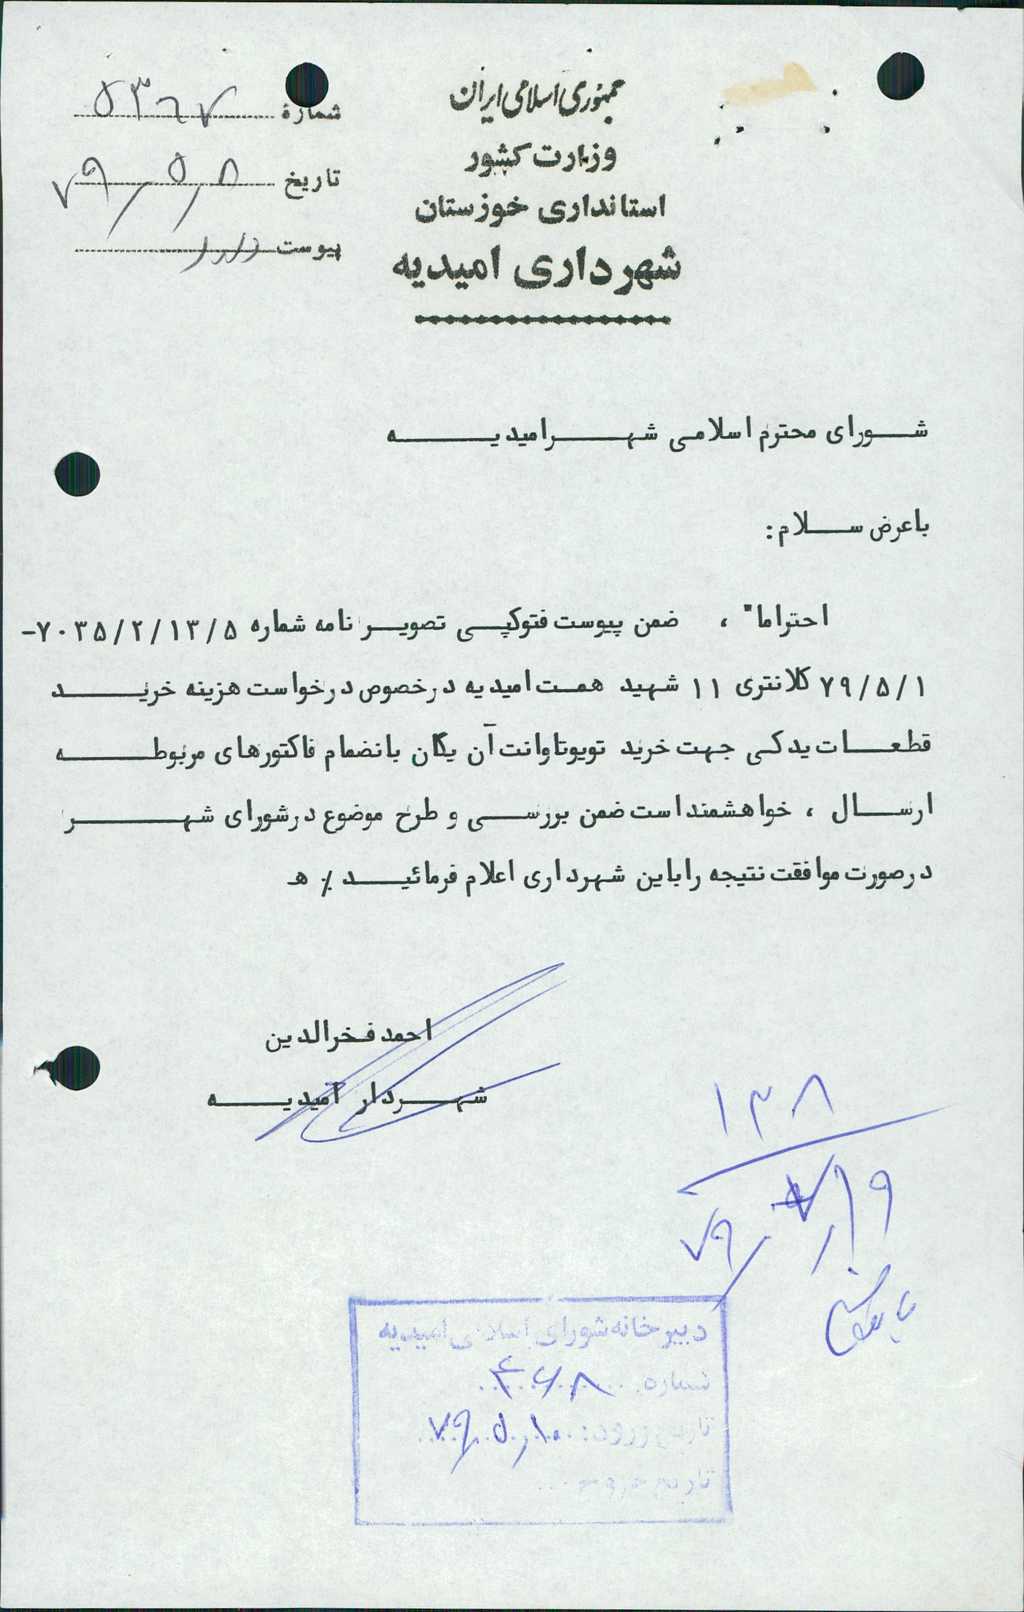 جمهوری اسلامی ایران
وزارت کشور
استانداری خوزستان
شهرداری امیدیه
شماره ۵۳۶۷
تاریخ ۷۹/۵/۸
پیوست دارد
شورای محترم اسلامی شهر امیدیه
باعرض سلام:
احتراما" ، ضمن پیوست فتوکپی تصویر نامه شماره ۷۰۳۵/۲/۱۳/۵-
۷۹/۵/۱ کلانتری ۱۱ شهید همت امیدیه درخصوص درخواست هزینه خرید
قطعات یدکی جهت خرید تویوتاوانت آن یکان بانضمام فاکتورهای مربوطه
ارسال ، خواهشمند است ضمن بررسی و طرح موضوع درشورای شهر
درصورت موافقت نتیجه را باین شهرداری اعلام فرمائید ٪ ه
احمد فخرالدین
شهردار امیدیه
۱۳۸
۷۹/۷/۱۹
دبیرخانه شورای اسلامی امیدیه
شماره:
تاریخ ورود: ۷۹/۵/۱۰
تاریخ خروج